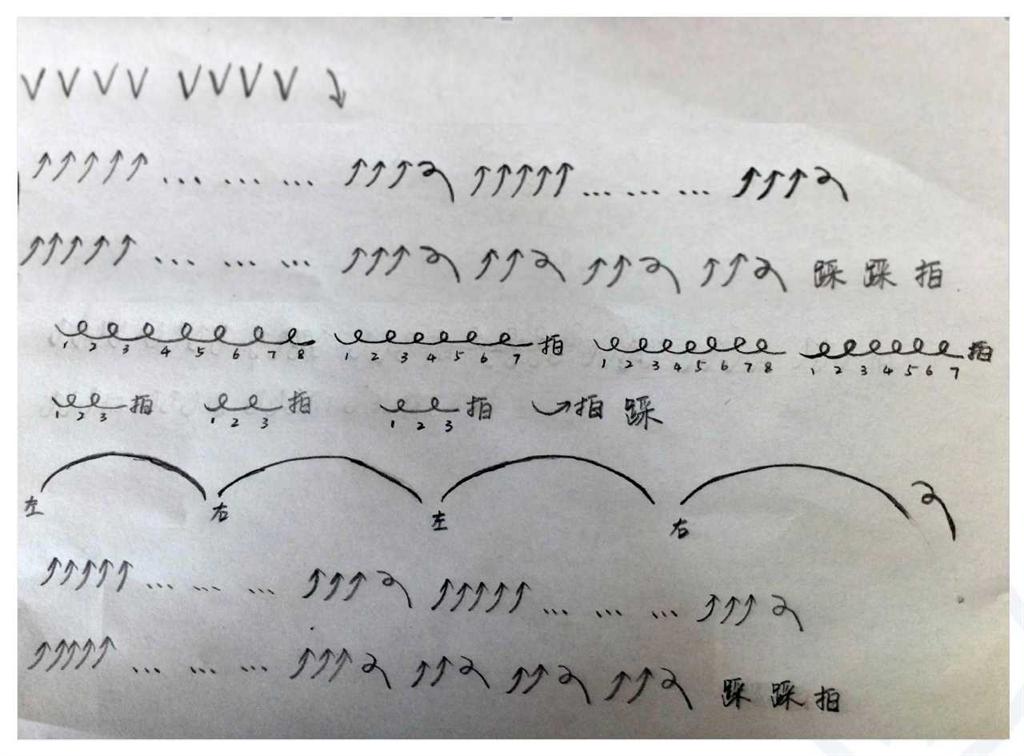 VVVV VVVV ↘
↑↑↑↑↑ ... ... ... ↑↑↑↷ ↑↑↑↑↑ ... ... ... ↑↑↑↷
↑↑↑↑↑ ... ... ... ↑↑↑↷ ↑↑↷ ↑↑↷ ↑↑↷ 踩 踩 拍
1 2 3 4 5 6 7 8 1 2 3 4 5 6 7 拍 1 2 3 4 5 6 7 8 1 2 3 4 5 6 7 拍
1 2 3 拍 1 2 3 拍 1 2 3 拍 → 拍 踩
左 右 左 右
↑↑↑↑↑ ... ... ... ↑↑↑↷ ↑↑↑↑↑ ... ... ... ↑↑↑↷
↑↑↑↑↑ ... ... ... ↑↑↑↷ ↑↑↷ ↑↑↷ ↑↑↷ 踩 踩 拍